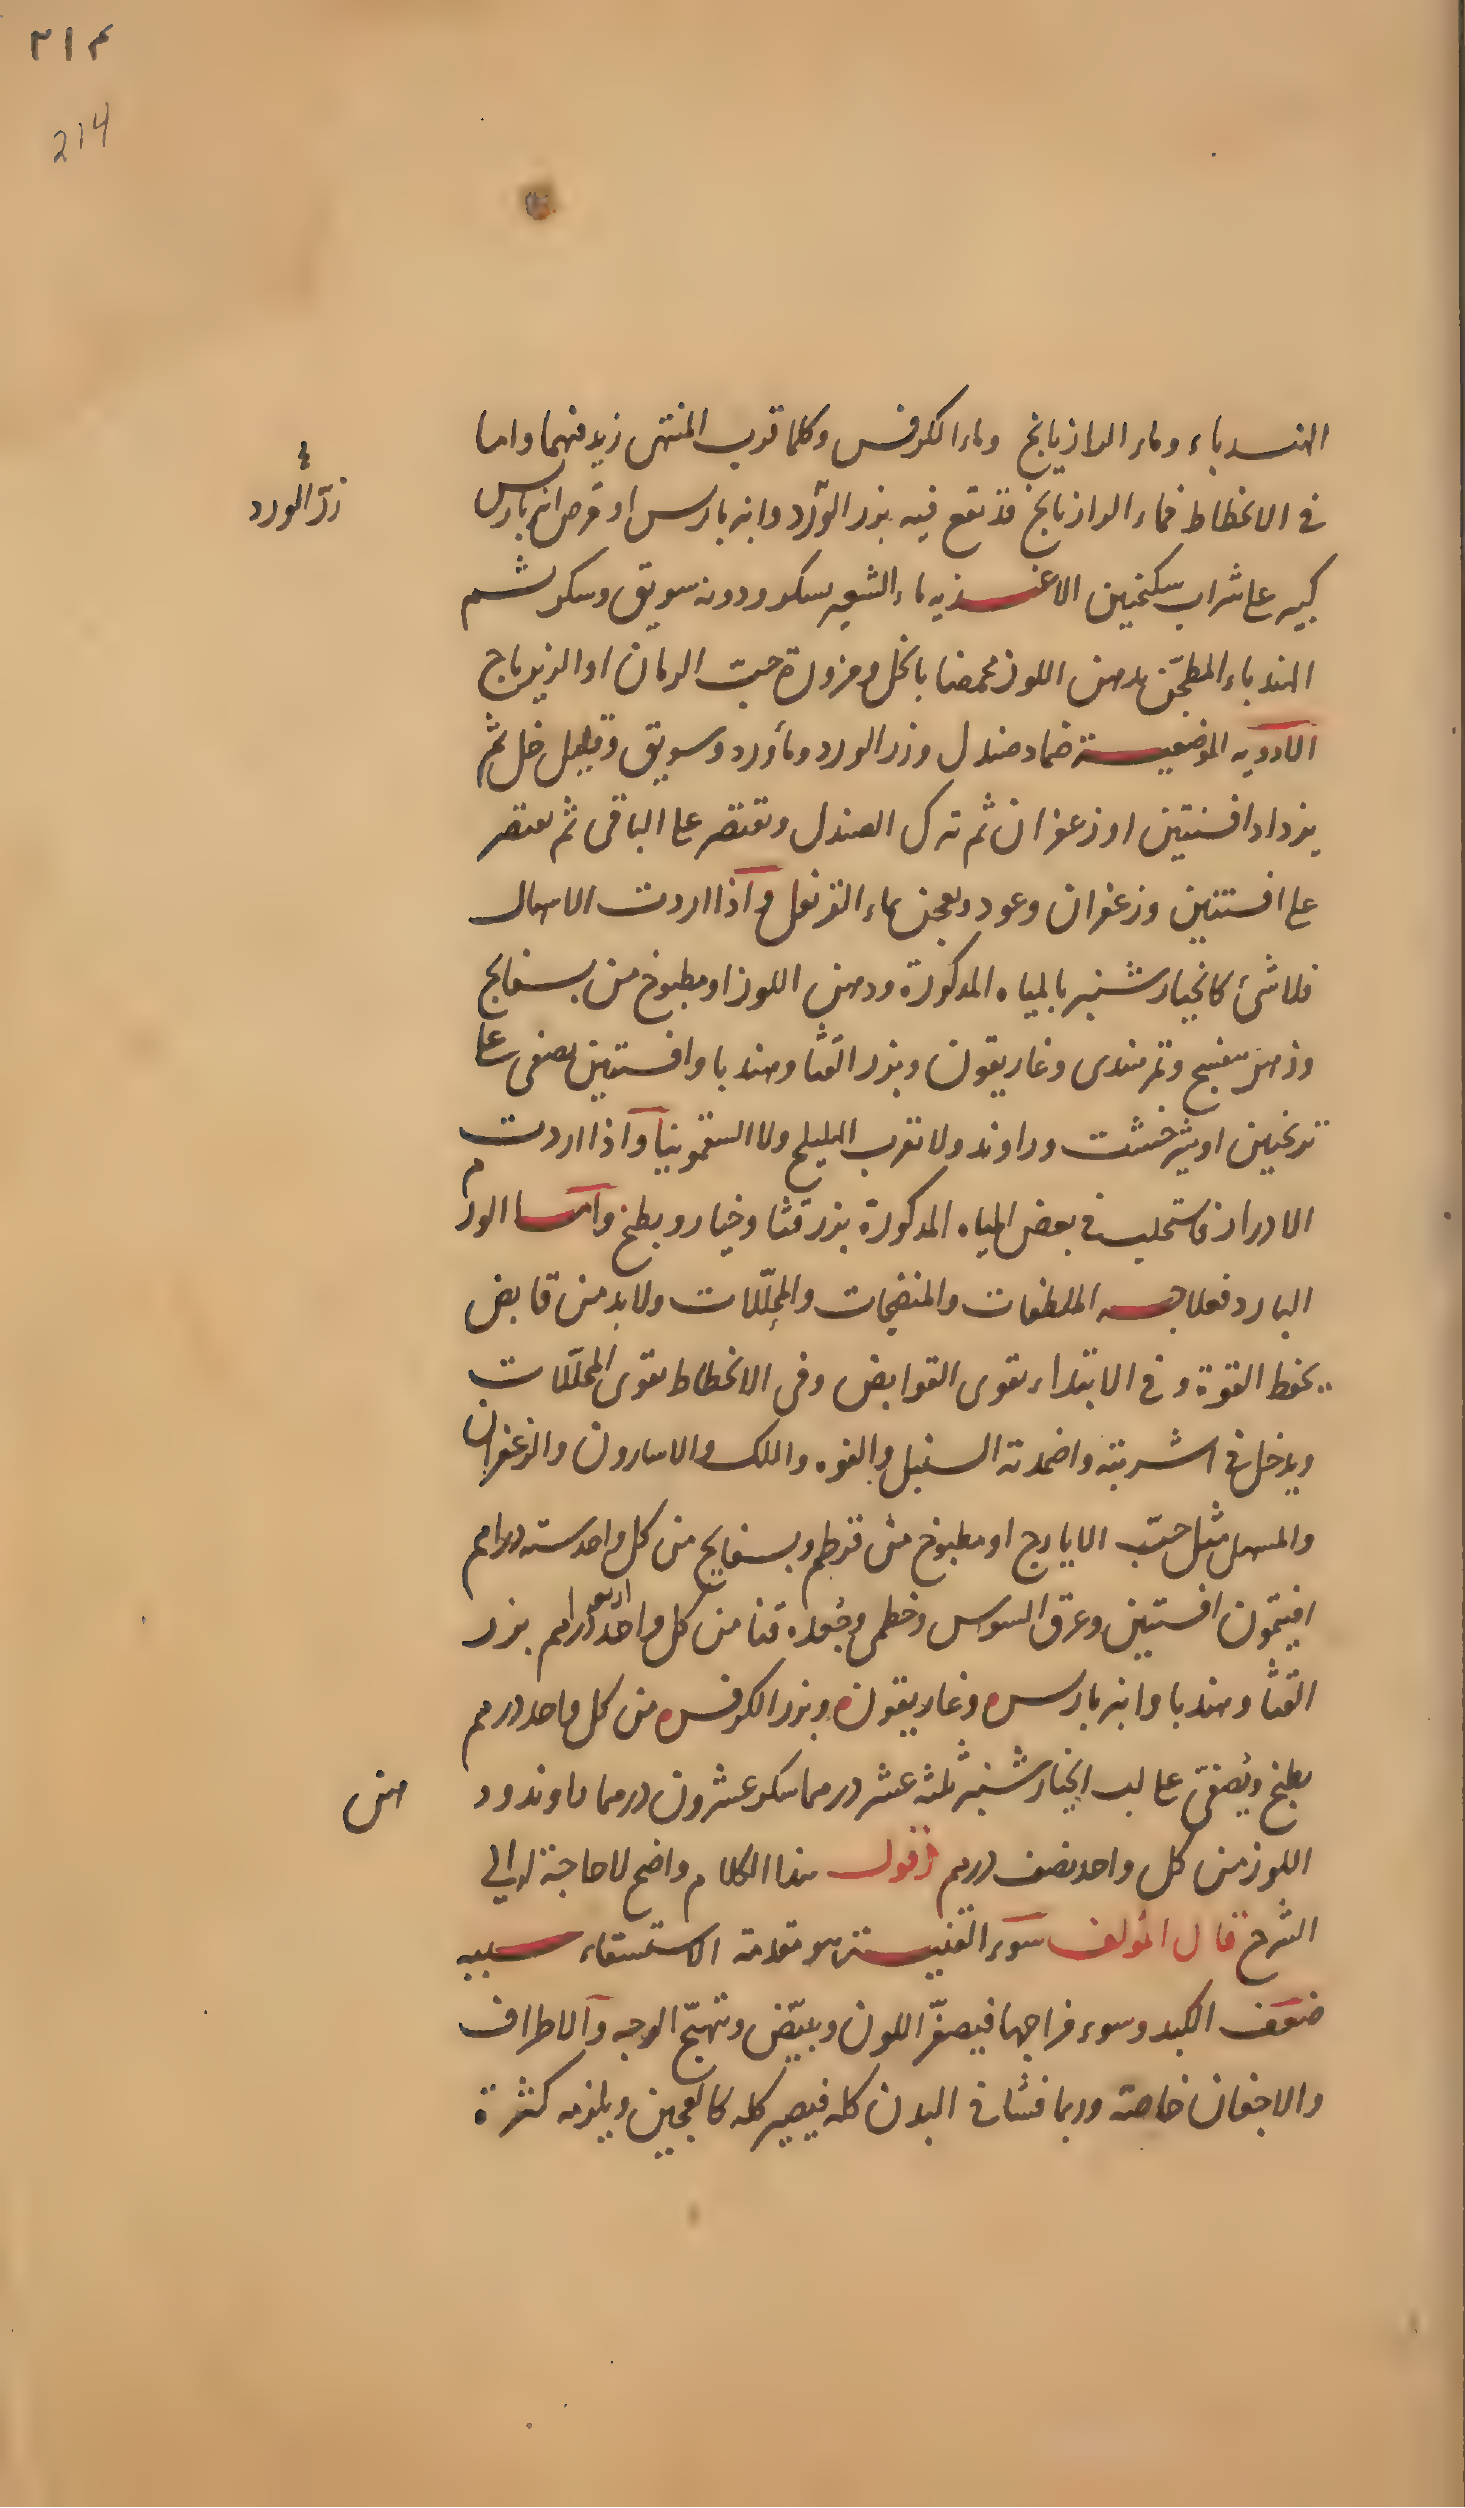 ٢١۴
214
الهندباء وماء الرازيانج وماء الكرفس وكلما قرب المنتهى زيد فيهما واما
في الانحطاط فماء الرازيانج قد نقع فيه بزر الورد وانبر باريس او قرص انبرباريس
زرّ الورد
كبير على شراب سكنجبين الاغذيه ماء الشعير بسكر ودونه سويق وسكر ثم
الهندباء المطجّن بدهن اللوز محمضا بالخل ومزورة حبّ الرمان او الزيرباج
الادويه الموضعية ضماد صندل وزر الورد وماورد وسويق وقليل خل ثم
يزداد افسنتين او زعفران ثم تترك الصندل وتقتصر على الباقى ثم تقتصر
على افسنتين وزعفران وعود ويعجن بماء القرنفل واذا اردت الاسهال
فلا شئ كالخيارشنبر بالمياه المذكورة ودهن اللوز او مطبوخ من بسفايج
وزهر بنفسج وتمر هندى وغاريقون وبزر القثا وهندبا وافسنتين يصفى على
ترنجبين او شيرخشت وراوند ولا تقرب الهليلج ولا السقمونيا واذا اردت
الادرار فاستحلب في بعض المياه المذكورة بزر قثا وخيار وبطيخ واما الورم
البارد فعلاجه الملطفات والمنضجات والمحلّلات ولا بد من قابض
يحفظ القوة وفي الابتداء يقوى القوابض وفى الانحطاط يقوى المحلّلات
ويدخل في اشربته واضمدته السنبل والفوه واللك والاسارون والزعفران
والمسهل مثل حبّ الايارج او مطبوخ من قرطم وبسفايج من كل واحد ستة دراهم
افيتمون افسنتين وعرق السوس وخطمى وجعده قنا من كل واحد اربعة دراهم بزر
القثا وهندبا وانبر باريس وغاريقون وبزر الكرفس من كل واحد درهم
يطبخ ويُصفّى على لب الخيارشنبر ثلثة عشر درهما سكر عشرون درهما راوند ود
هن
اللوز من كل واحد نصف درهم اقول هذا الكلام واضح لا حاجة له الى
الشرح قال المؤلف سوء القنية هو مقدمة الاستسقاء سببه
ضعف الكبد وسوء مزاجها فيصفرّ اللون ويبيّض وتهبّج الوجه والاطراف
والاجفان خاصة وربما فشا في البدن كله فيصير كله كالعجين ويلزمه كثرة